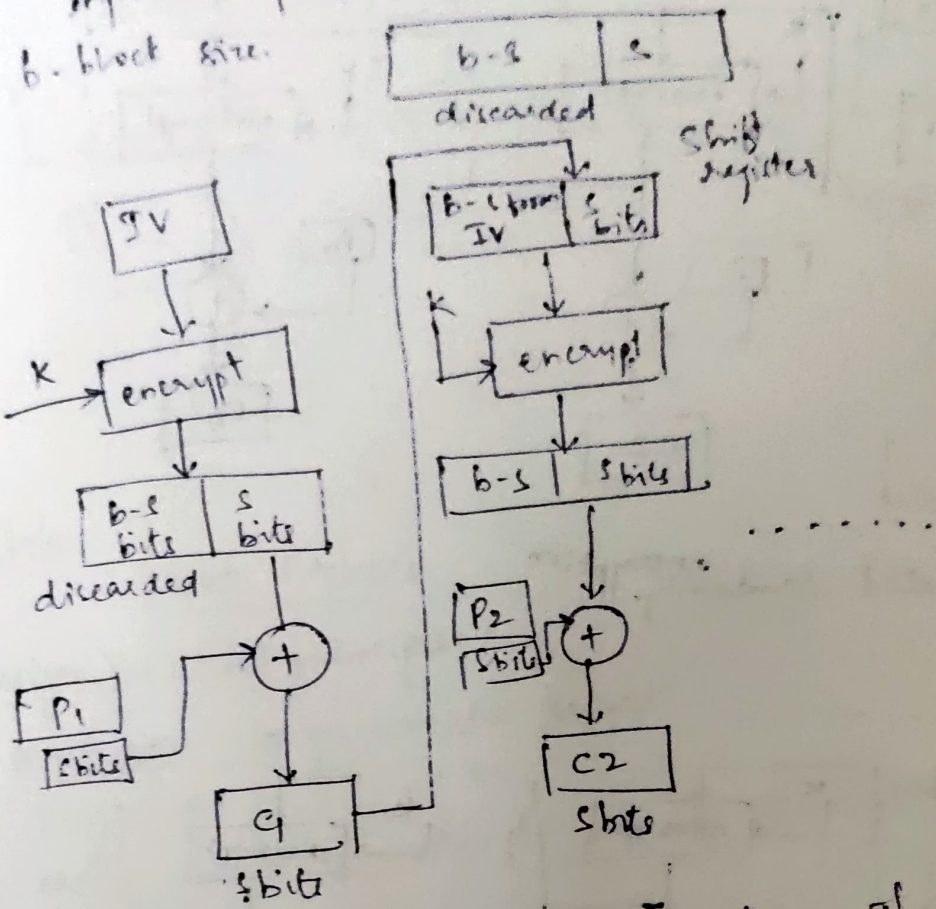 b. block size.
b-s s
discarded
shift
register
IV
B-s from s
IV bits
K
encrypt
K
encrypt
b-s s bits
B-s s
bits bits
discarded
+
P2
s bits
+
P1
s bits
C1
s bits
C2
s bits